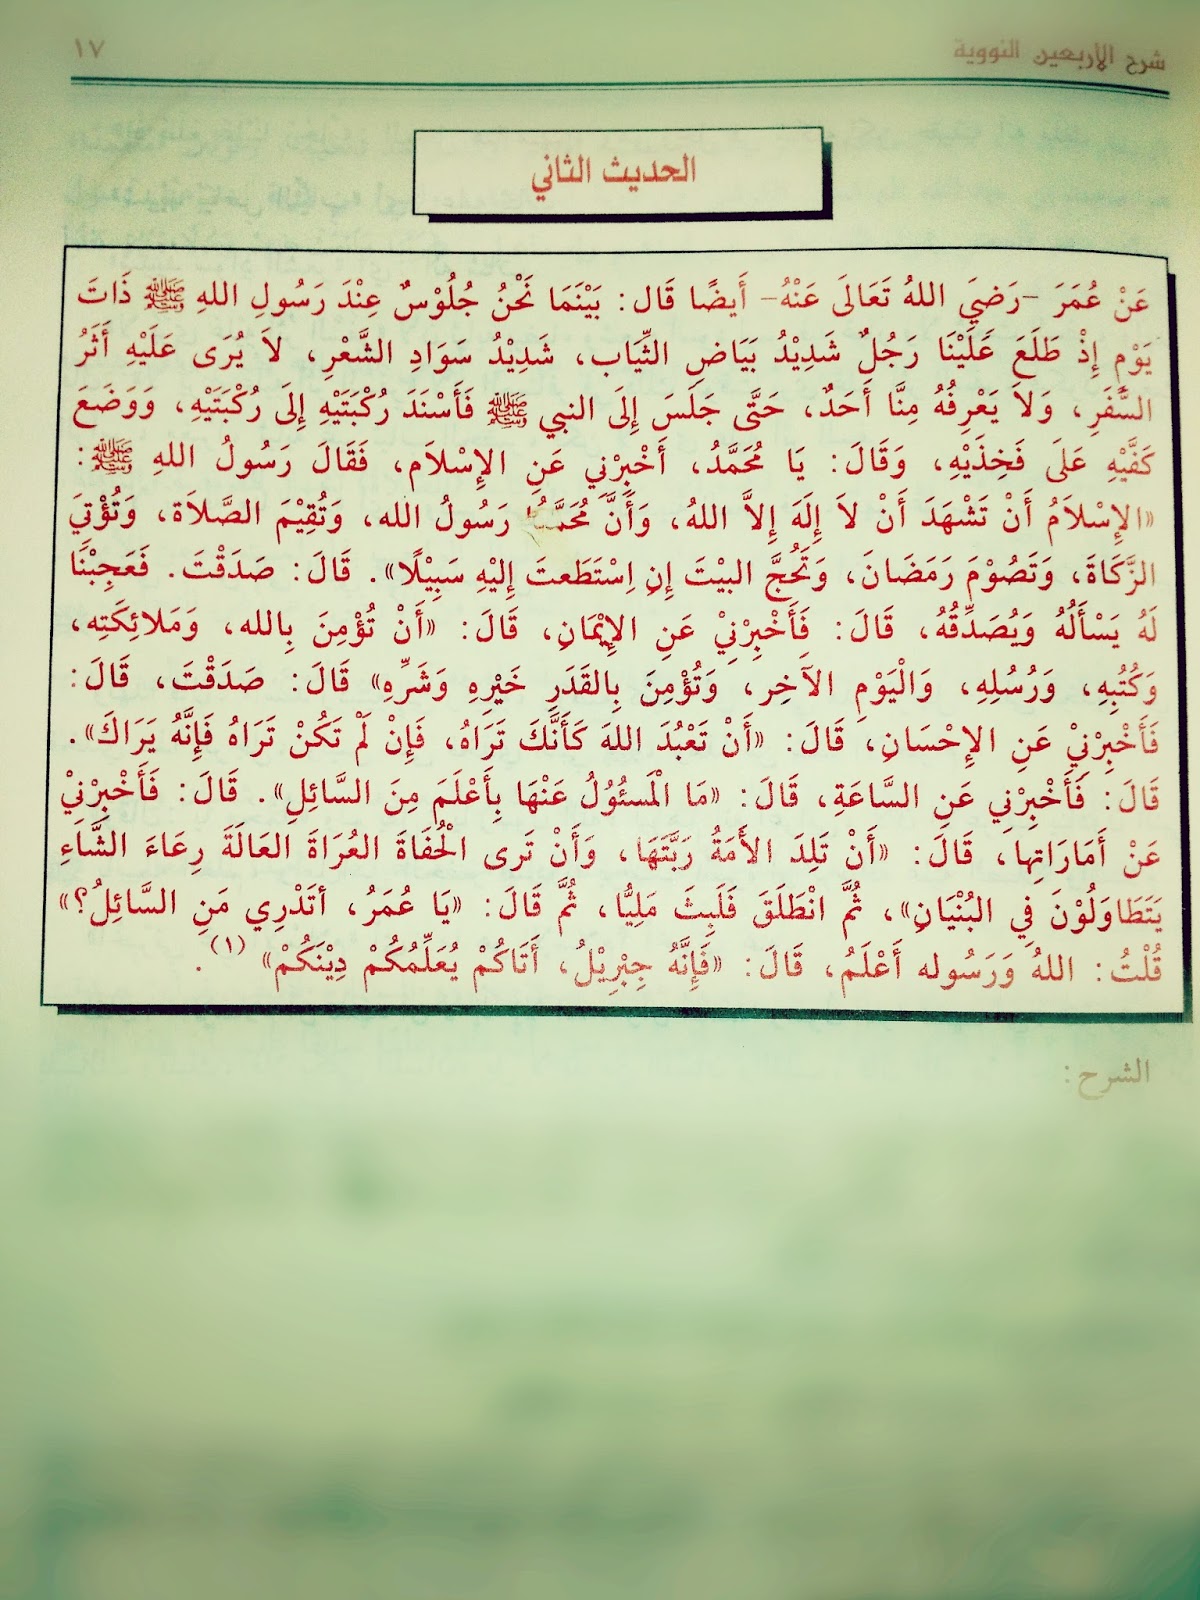 شرح الأربعين النووية ١٧
الحديث الثاني
عَنْ عُمَرَ -رَضِيَ اللهُ تَعَالَى عَنْهُ- أَيضًا قَال: بَيْنَمَا نَحْنُ جُلُوْسٌ عِنْدَ رَسُولِ اللهِ ﷺ ذَاتَ
يَوْمٍ إِذْ طَلَعَ عَلَيْنَا رَجُلٌ شَدِيْدُ بَيَاضِ الثِّيَاب، شَدِيْدُ سَوَادِ الشَّعْرِ، لاَ يُرَى عَلَيْهِ أَثَرُ
السَّفَرِ، وَلاَ يَعْرِفُهُ مِنَّا أَحَدٌ، حَتَّى جَلَسَ إِلَى النبي ﷺ فَأَسْنَدَ رُكْبَتَيْهِ إِلَى رُكْبَتَيْهِ، وَوَضَعَ
كَفَّيْهِ عَلَى فَخِذَيْهِ، وَقَالَ: يَا مُحَمَّدُ، أَخْبِرْنِي عَنِ الإِسْلَام، فَقَالَ رَسُولُ اللهِ ﷺ:
«الإِسْلَامُ أَنْ تَشْهَدَ أَنْ لاَ إِلَهَ إِلاَّ اللهُ، وَأَنَّ مُحَمَّدًا رَسُولُ الله، وَتُقِيْمَ الصَّلاَة، وَتُؤْتِيَ
الزَّكَاةَ، وَتَصُوْمَ رَمَضَانَ، وَتَحُجَّ البيْتَ إِنِ اِسْتَطَعتَ إِليْهِ سَبِيْلًا». قَالَ: صَدَقْتَ. فَعَجِبْنَا
لَهُ يَسْأَلُهُ وَيُصَدِّقُهُ، قَالَ: فَأَخْبِرْنِيْ عَنِ الإِيْمَانِ، قَالَ: «أَنْ تُؤْمِنَ بِالله، وَمَلائِكَتِه،
وَكُتُبِهِ، وَرُسُلِهِ، وَالْيَوْمِ الآخِر، وَتُؤْمِنَ بِالقَدَرِ خَيْرِهِ وَشَرِّهِ» قَالَ: صَدَقْتَ، قَالَ:
فَأَخْبِرْنِيْ عَنِ الإِحْسَانِ، قَالَ: «أَنْ تَعْبُدَ اللهَ كَأَنَّكَ تَرَاهُ، فَإِنْ لَمْ تَكُنْ تَرَاهُ فَإِنَّهُ يَرَاكَ».
قَالَ: فَأَخْبِرْنِي عَنِ السَّاعَةِ، قَالَ: «مَا الْمَسئُوْلُ عَنْهَا بِأَعْلَمَ مِنَ السَّائِلِ». قَالَ: فَأَخْبِرْنِيْ
عَنْ أَمَارَاتِها، قَالَ: «أَنْ تَلِدَ الأَمَةُ رَبَّتَهَا، وَأَنْ تَرى الْحُفَاةَ العُرَاةَ العَالَةَ رِعَاءَ الشَّاءِ
يَتَطَاوَلُوْنَ فِي البُنْيَانِ»، ثُمَّ انْطَلَقَ فَلَبِثَ مَلِيًّا، ثُمَّ قَالَ: «يَا عُمَرُ، أتَدْرِي مَنِ السَّائِلُ؟»
قُلْتُ: اللهُ وَرَسُوله أَعْلَمُ، قَالَ: «فَإِنَّهُ جِبْرِيْلُ، أَتَاكُمْ يُعَلِّمُكُمْ دِيْنَكُمْ» (١).
الشرح: